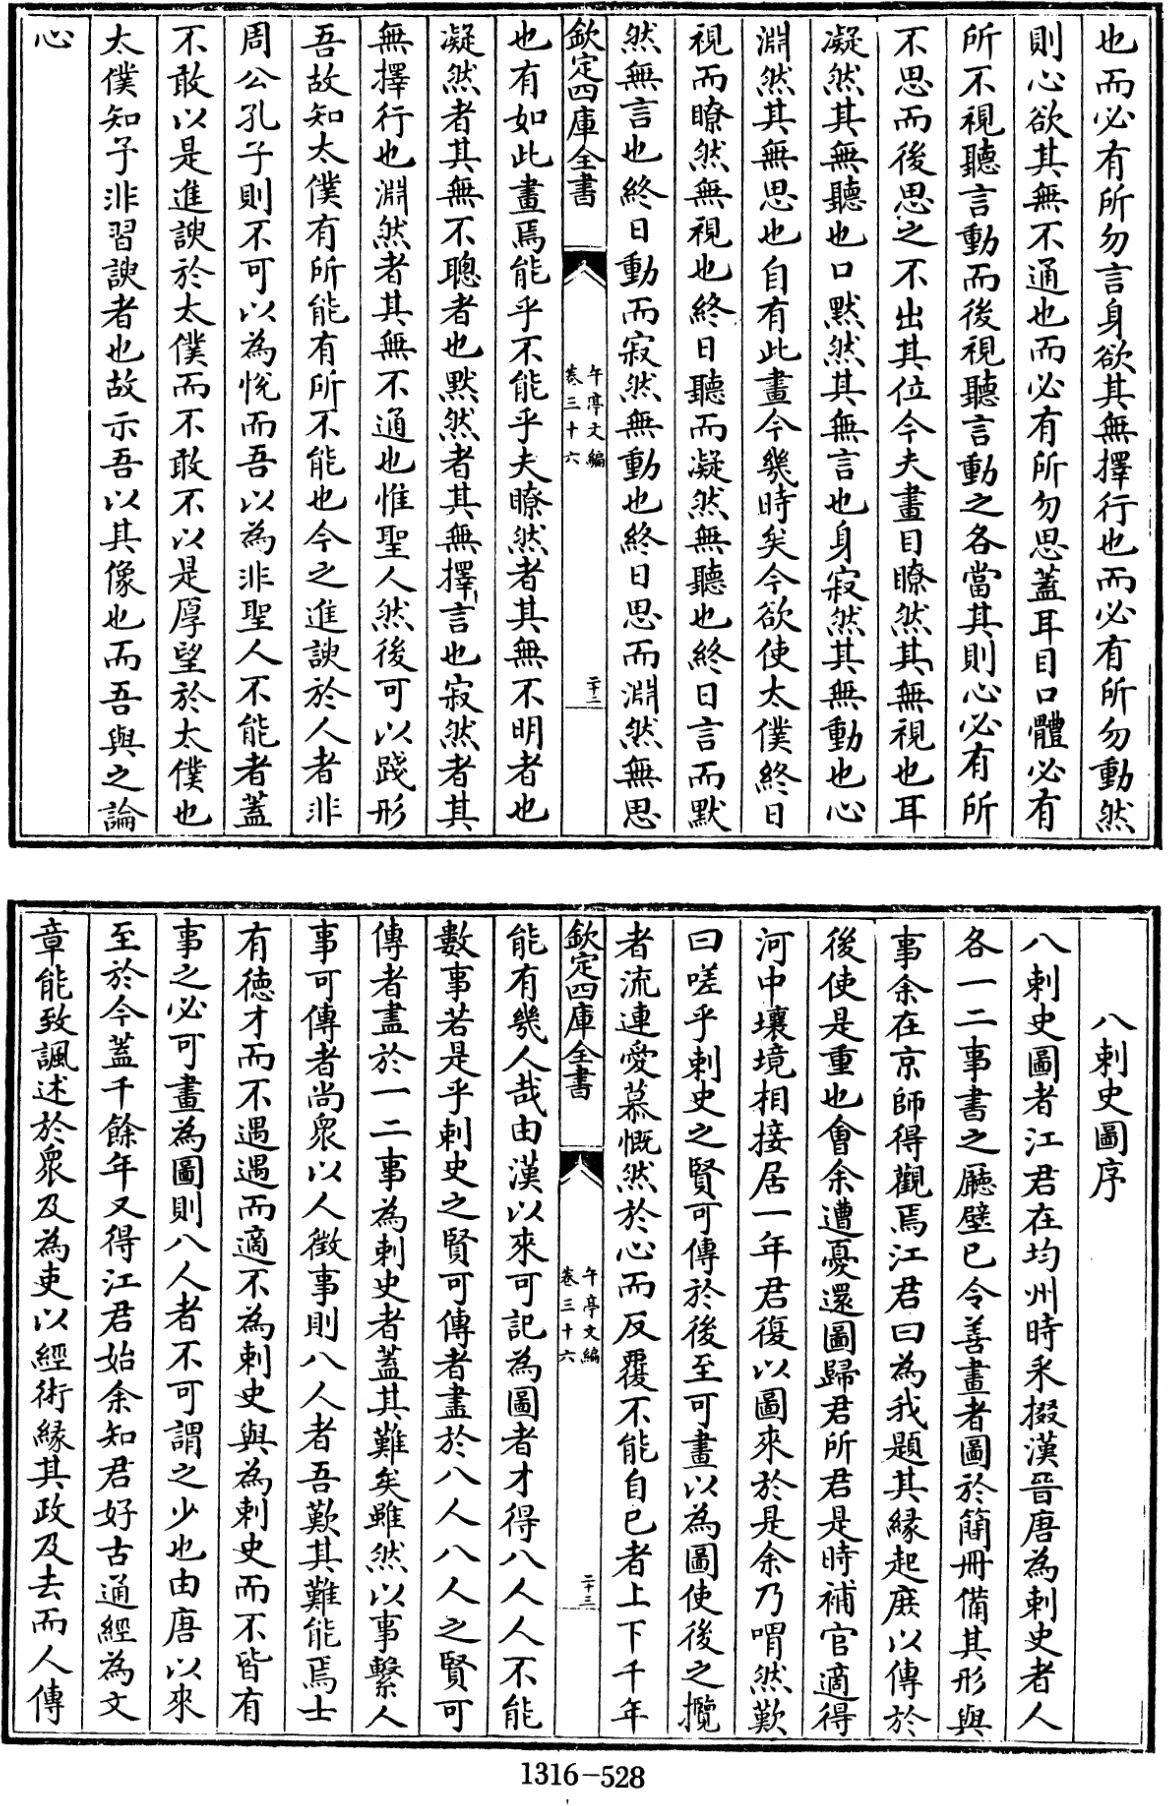 也而必有所勿言身欲其無擇行也而必有所勿動然
則心欲其無不通也而必有所勿思蓋耳目口體必有
所不視聽言動而後視聽言動之各當其則心必有所
不思而後思之不出其位今夫畫目瞭然其無視也耳
凝然其無聽也口默然其無言也身寂然其無動也心
淵然其無思也自有此畫今幾時矣今欲使太僕終日
視而瞭然無視也終日聽而凝然無聽也終日言而默
然無言也終日動而寂然無動也終日思而淵然無思
欽定四庫全書
午亭文編
卷三十六
二十二
也有如此畫焉能乎不能乎夫瞭然者其無不明者也
凝然者其無不聰者也默然者其無擇言也寂然者其
無擇行也淵然者其無不通也惟聖人然後可以踐形
吾故知太僕有所能有所不能也今之進諛於人者非
周公孔子則不可以為恱而吾以為非聖人不能者蓋
不敢以是進諛於太僕而不敢不以是厚望於太僕也
太僕知予非習諛者也故示吾以其像也而吾與之論
心
八刺史圖序
八刺史圖者江君在均州時采掇漢晉唐為刺史者人
各一二事書之廳壁已令善畫者圖於簡冊備其形與
事余在京師得觀焉江君曰為我題其緣起庶以傳於
後使是重也會余遭憂還圖歸君所君是時補官適得
河中壤境相接居一年君復以圖來於是余乃喟然歎
曰嗟乎刺史之賢可傳於後至可畫以為圖使後之攬
者流連愛慕慨然於心而反覆不能自已者上下千年
欽定四庫全書
午亭文編
卷三十六
二十三
能有幾人哉由漢以來可記為圖者才得八人人不能
數事若是乎刺史之賢可傳者盡於八人八人之賢可
傳者盡於一二事為刺史者蓋其難矣雖然以事繫人
事可傳者尚衆以人徵事則八人者吾歎其難能焉士
有德才而不遇遇而適不為刺史與為刺史而不皆有
事之必可畫為圖則八人者不可謂之少也由唐以來
至於今蓋千餘年又得江君始余知君好古通經為文
章能致諷述於衆及為吏以經術緣其政及去而人傳
1316-528